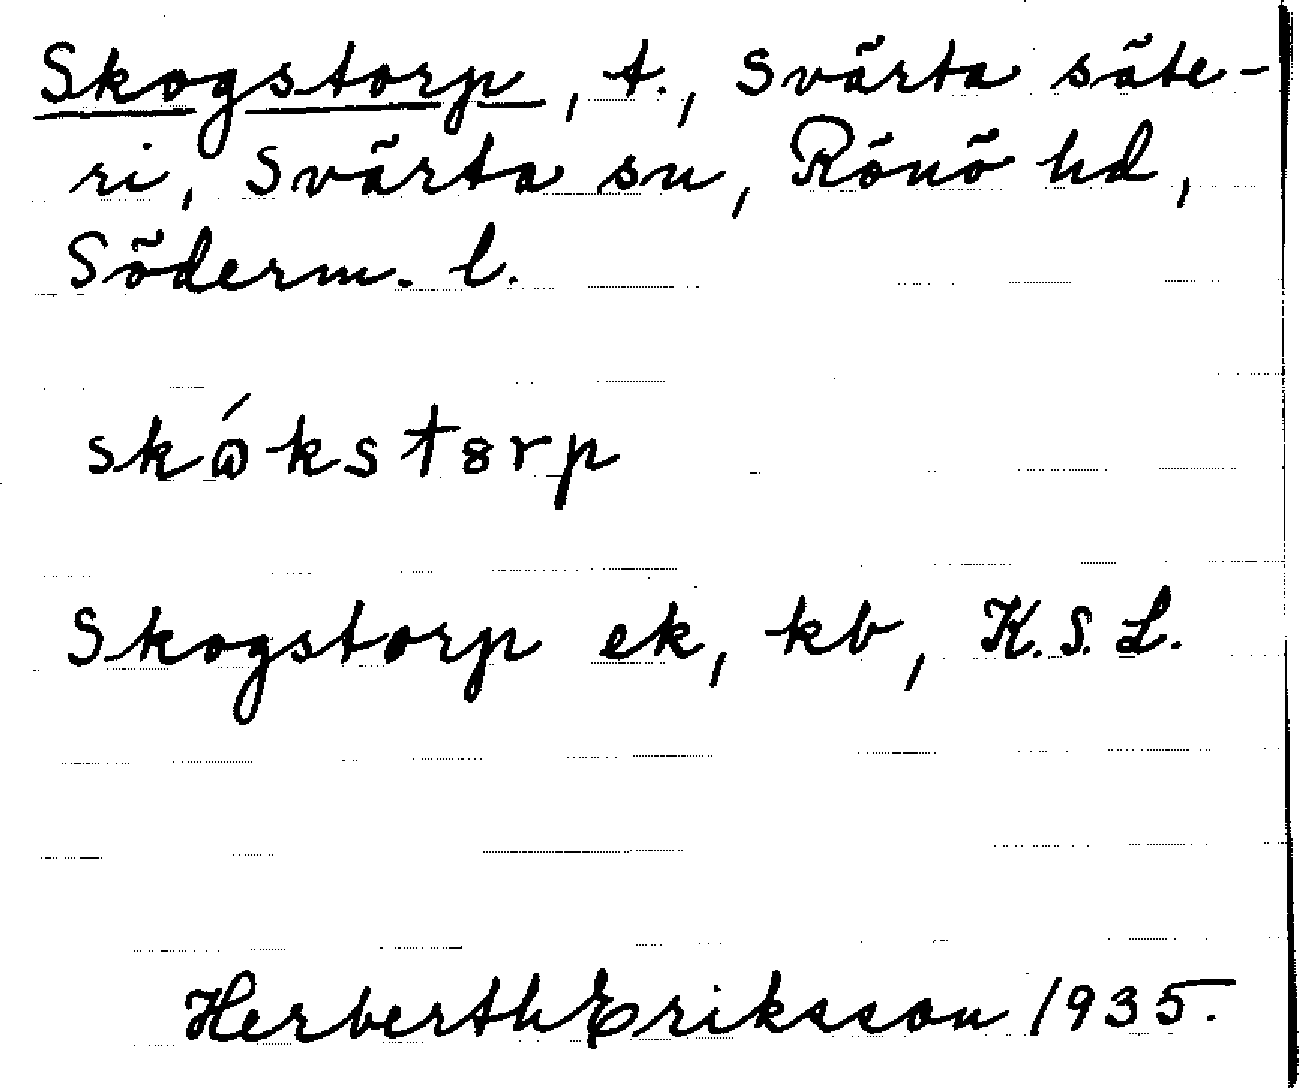 Skogstorp, t., Svärta säte-
ri, Svärta sn, Rönö hd,
Söderm. l.
skókstȣrp
Skogstorp ek, kb, K.S.L.
Herberth Eriksson 1935.